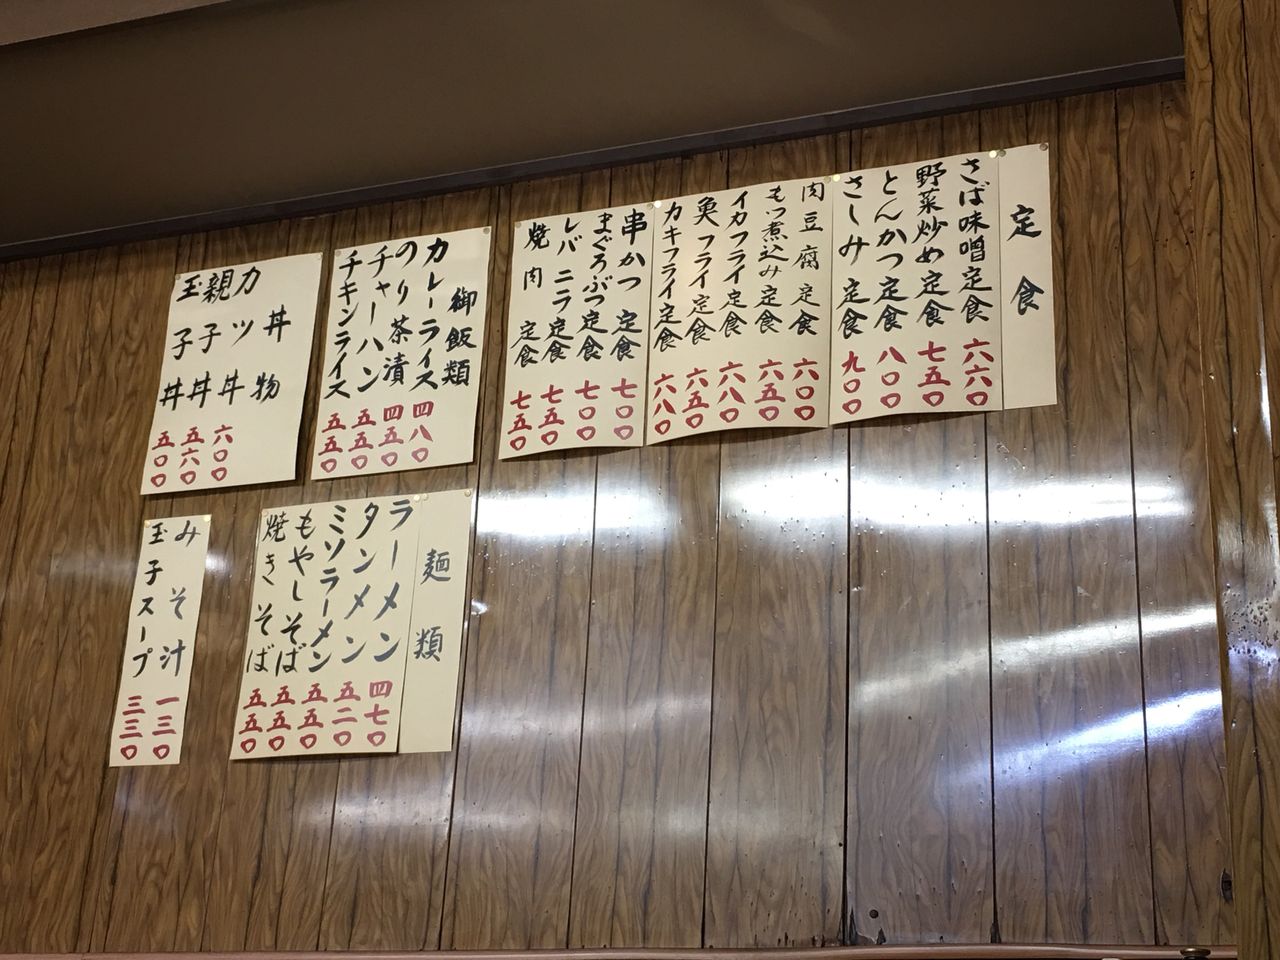 定食
さば味噌定食 六六〇
野菜炒め定食 七五〇
とんかつ定食 八〇〇
さしみ定食 九〇〇
肉豆腐定食 六〇〇
もつ煮込み定食 六五〇
イカフライ定食 六八〇
魚フライ定食 六五〇
カキフライ定食 六八〇
串かつ定食 七〇〇
まぐろぶつ定食 七〇〇
レバニラ定食 七五〇
焼肉定食 七五〇
御飯類
カレーライス 四八〇
のり茶漬 四五〇
チャーハン 五五〇
チキンライス 五五〇
丼物
カツ丼 六〇〇
親子丼 五六〇
玉子丼 五〇〇
麺類
ラーメン 四七〇
タンメン 五二〇
ミソラーメン 五五〇
もやしそば 五五〇
焼きそば 五五〇
みそ汁 一三〇
玉子スープ 三三〇